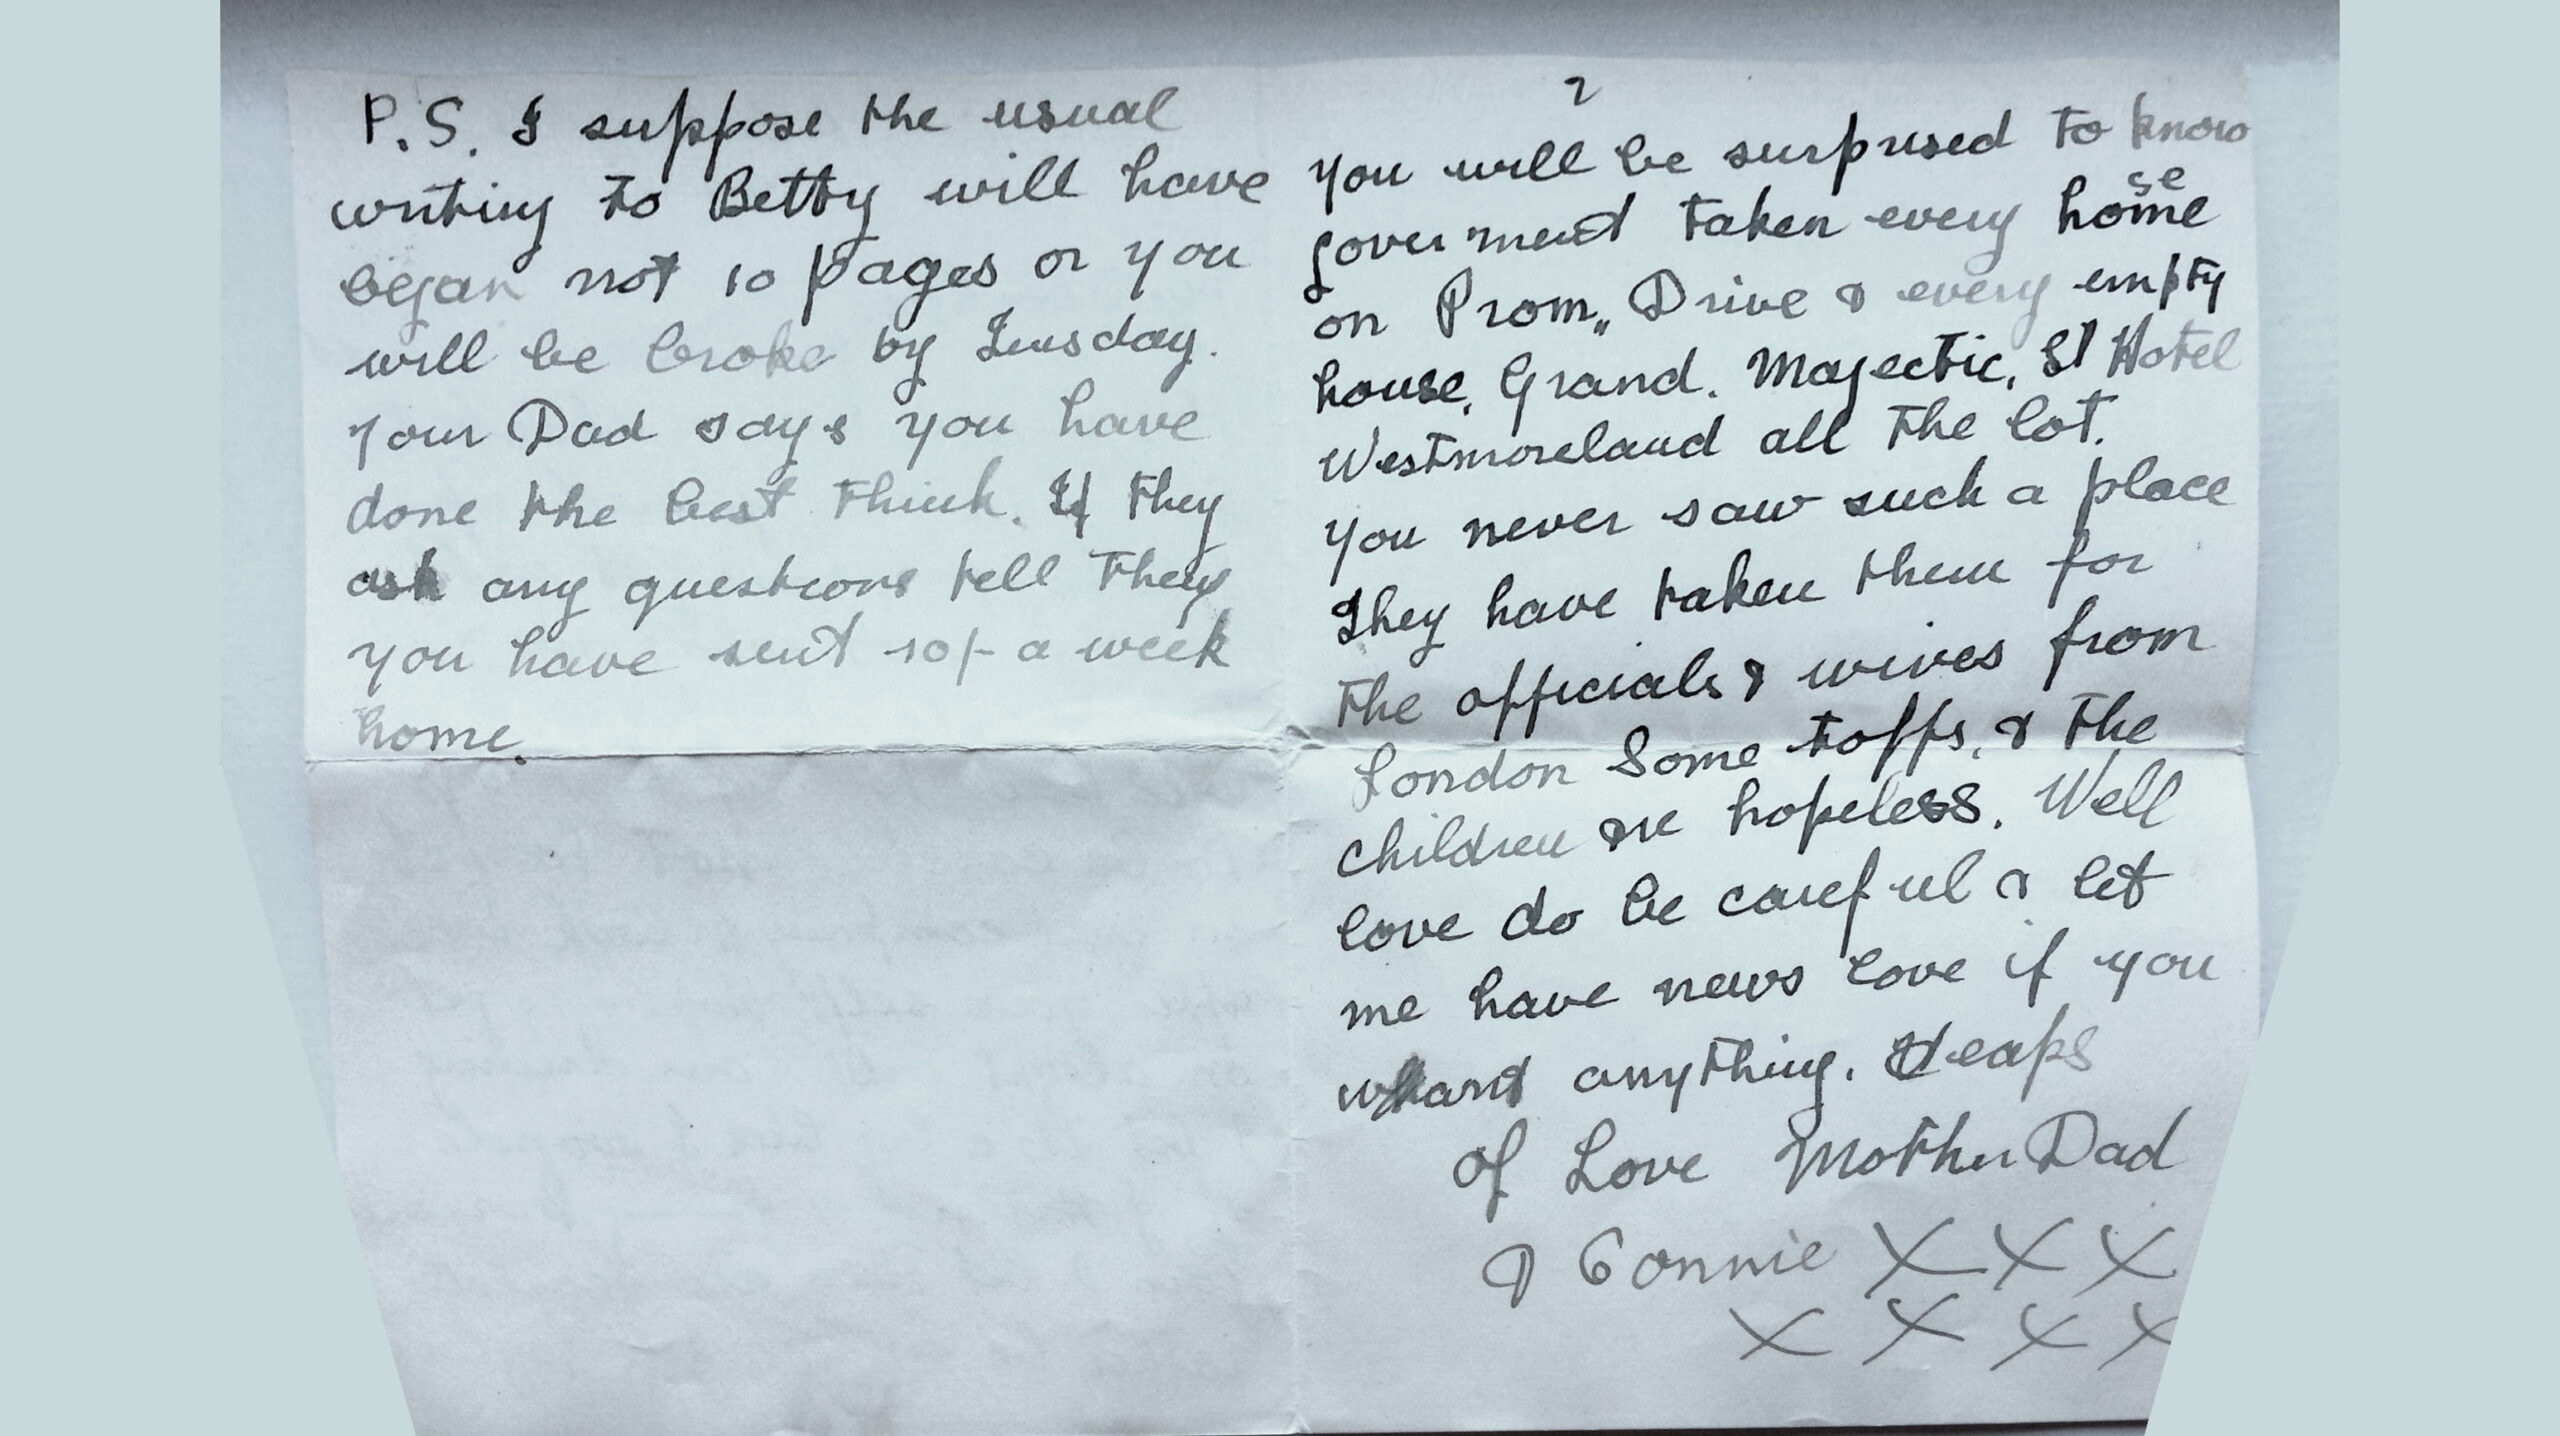 P.S. I suppose the usual
writing to Betty will have
began not 10 pages or you
will be broke by Tuesday.
Your Dad says you have
done the best think. If they
ask any questions tell they
you have sent 10/- a week
home.
2
You will be surprised to know
government taken every house
on Prom,, Drive & every empty
house, Grand. Majectic, St Hotel
Westmoreland all the lot.
You never saw such a place
They have taken them for
the officials & wives from
London Some toffs, & the
children are hopeless. Well
love do be careful & let
me have news love if you
want anything. Heaps
of Love Mother Dad
& Connie X X X
X X X X